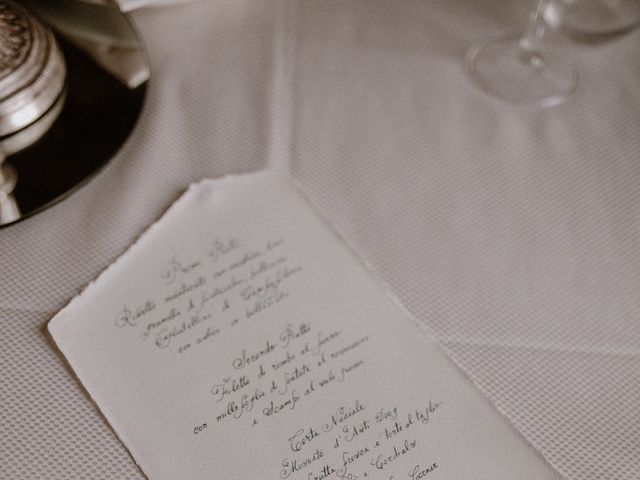 Primi Piatti
Risotto mantecato con
granella di
di
con astice in bellavista
Secondo Piatto
Filetto di rombo al forno
con millefoglie di patate al rosmarino
e Scampi al sale
Torta Nuziale
Moscato d'Asti Docg
frutta fresca e torte al taglio
e Cordials
Corner